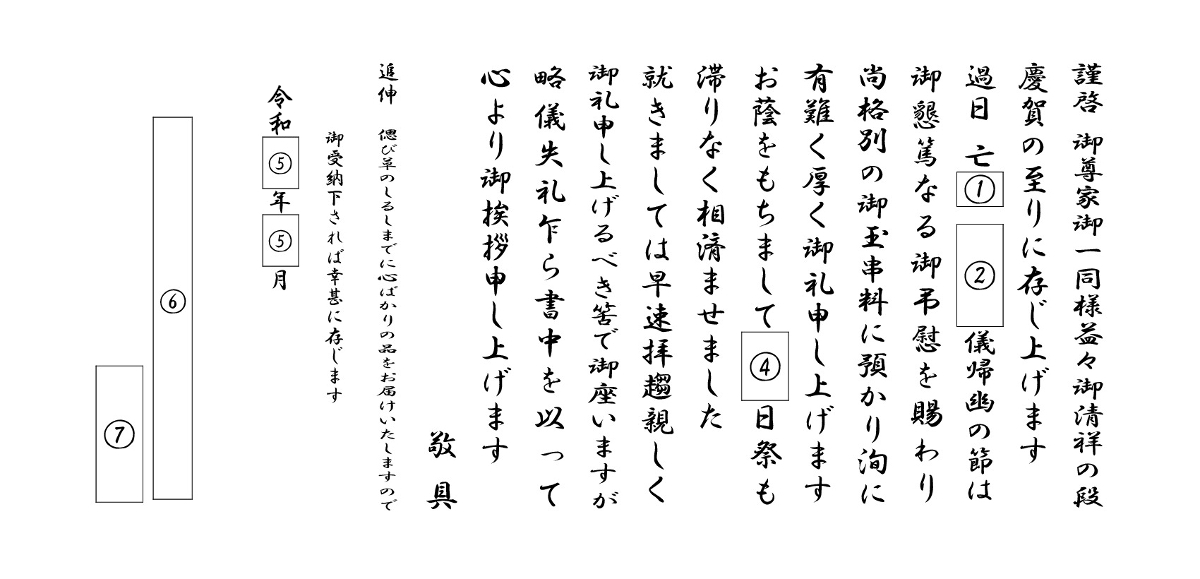 謹啓 御尊家御一同様益々御清祥の段
慶賀の至りに存じ上げます
過日 亡① ② 儀帰幽の節は
御懇篤なる御弔慰を賜わり
尚格別の御玉串料に預かり洵に
有難く厚く御礼申し上げます
お蔭をもちまして④日祭も
滞りなく相済ませました
就きましては早速拝趨親しく
御礼申し上げるべき筈で御座いますが
略儀失礼乍ら書中を以って
心より御挨拶申し上げます
敬具
追伸 偲び草のしるしまでに心ばかりの品をお届けいたしますので
御受納下されば幸甚に存じます
令和⑤年⑤月
⑥
⑦